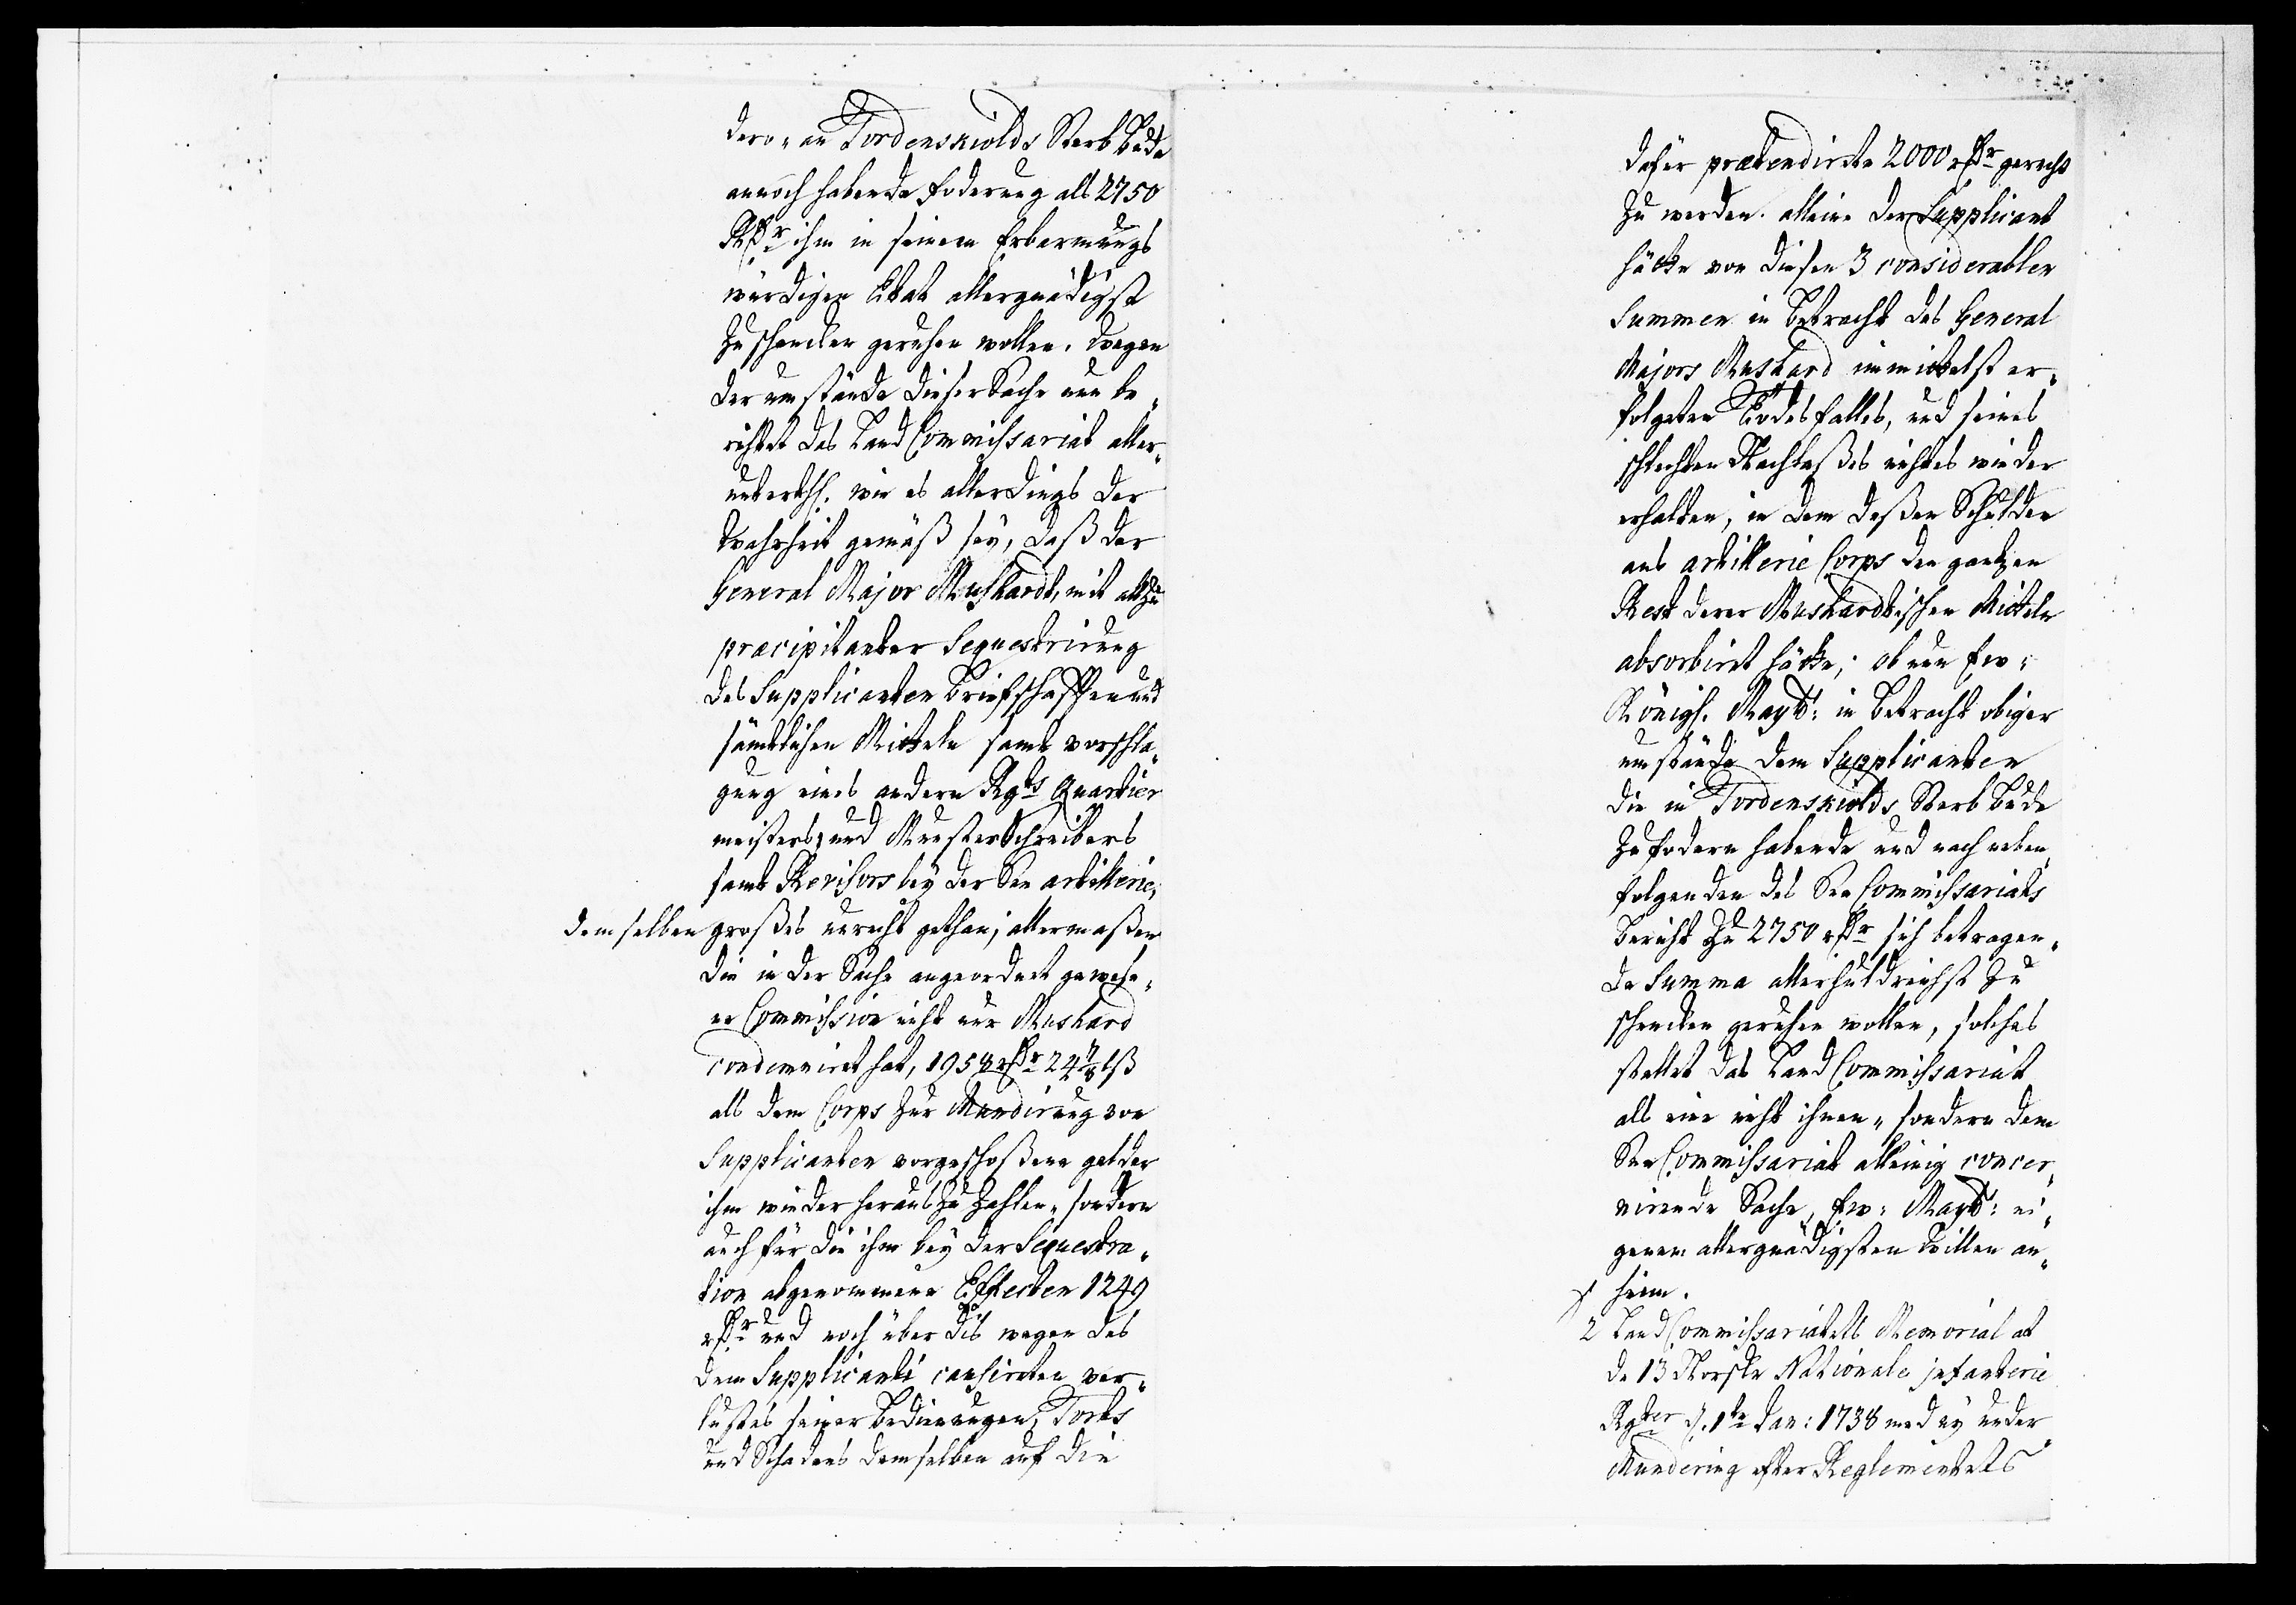 dero an Tordenskiolds Sterb Bude
annoch habende foderung als 2750
Rdr ihm in seinem Erbarmungs
würdigen Etat allergnädigst
zu schencken geruhen wollen. Wegen
der umstände dieser Sache nun be„
richtet das Land Commissariat aller„
unterthl. wie es allerdings der
Wahrheit gemäß sey, daß der
General Major Mushardt, mit allzu
præcipitanter Sequestrirung
des Supplicanten Briefschafften und
sämtlichen Mitteln samt vorschla„
gung eines andern Rgts Quartier
meisters, und Munster Schreibers
samt Revisors bey der See artillerie,
demselben großes unrecht gethan, allermaßen
die in der Sache angeordnet gewese„
ne Commission nicht nur Mushard
condemniret hat, 1958 rdr 24 7/8 lß
als dem Corps zur Mundirung von
Supplicanten vorgeschoßene gelder
ihm wieder heraus zu zahlen, sondern
auch für die ihm bey der Sequestra„
tion abgenommene Effecten 1249
rdr und noch über dis wegen des
dem Supplicanti causirten ver„
lustes seiner Bedienungen, Torts
und Schadens demselben auf die
dafür prætendirte 2000 rdr gerecht
zu werden. alleine der Supplicant
hätte von diesen 3 considerablen
Summen in Betracht des General
Majors Mushard immittelst er„
folgeten Todesfalles, und seines
schlechten Nachlaßes nichtes wieder
erhalten, in dem deßen Schulden
ans artillerie Corps den gantzen
Rest derer Mushardtischen Mitteln
absorbiret hätte; ob nun Ew:
Königl. Maytt: in betracht obiger
umstände dem Supplicanten
die in Tordenskiolds Sterb Bude
zu fodern habende und nach neben„
folgenden des See Commissariats
Bericht zu 2750 rdr sich betragen„
de Summa allerhuldreichst zu
schencken geruhen wollen, solches
stellet das Land Commissariat
als eine nicht ihnen, sondern dem
See Commissariat alleinig concer„
nirende Sache, Ew: Maytt: ei„
genem allergnädigsten Willen an„
heim.
2 Land Commissariatets Memorial at
de 13 Norske Nationale infanterie
Rgter d. 1te Jan: 1738 med ny under
Mundering efter Reglementets